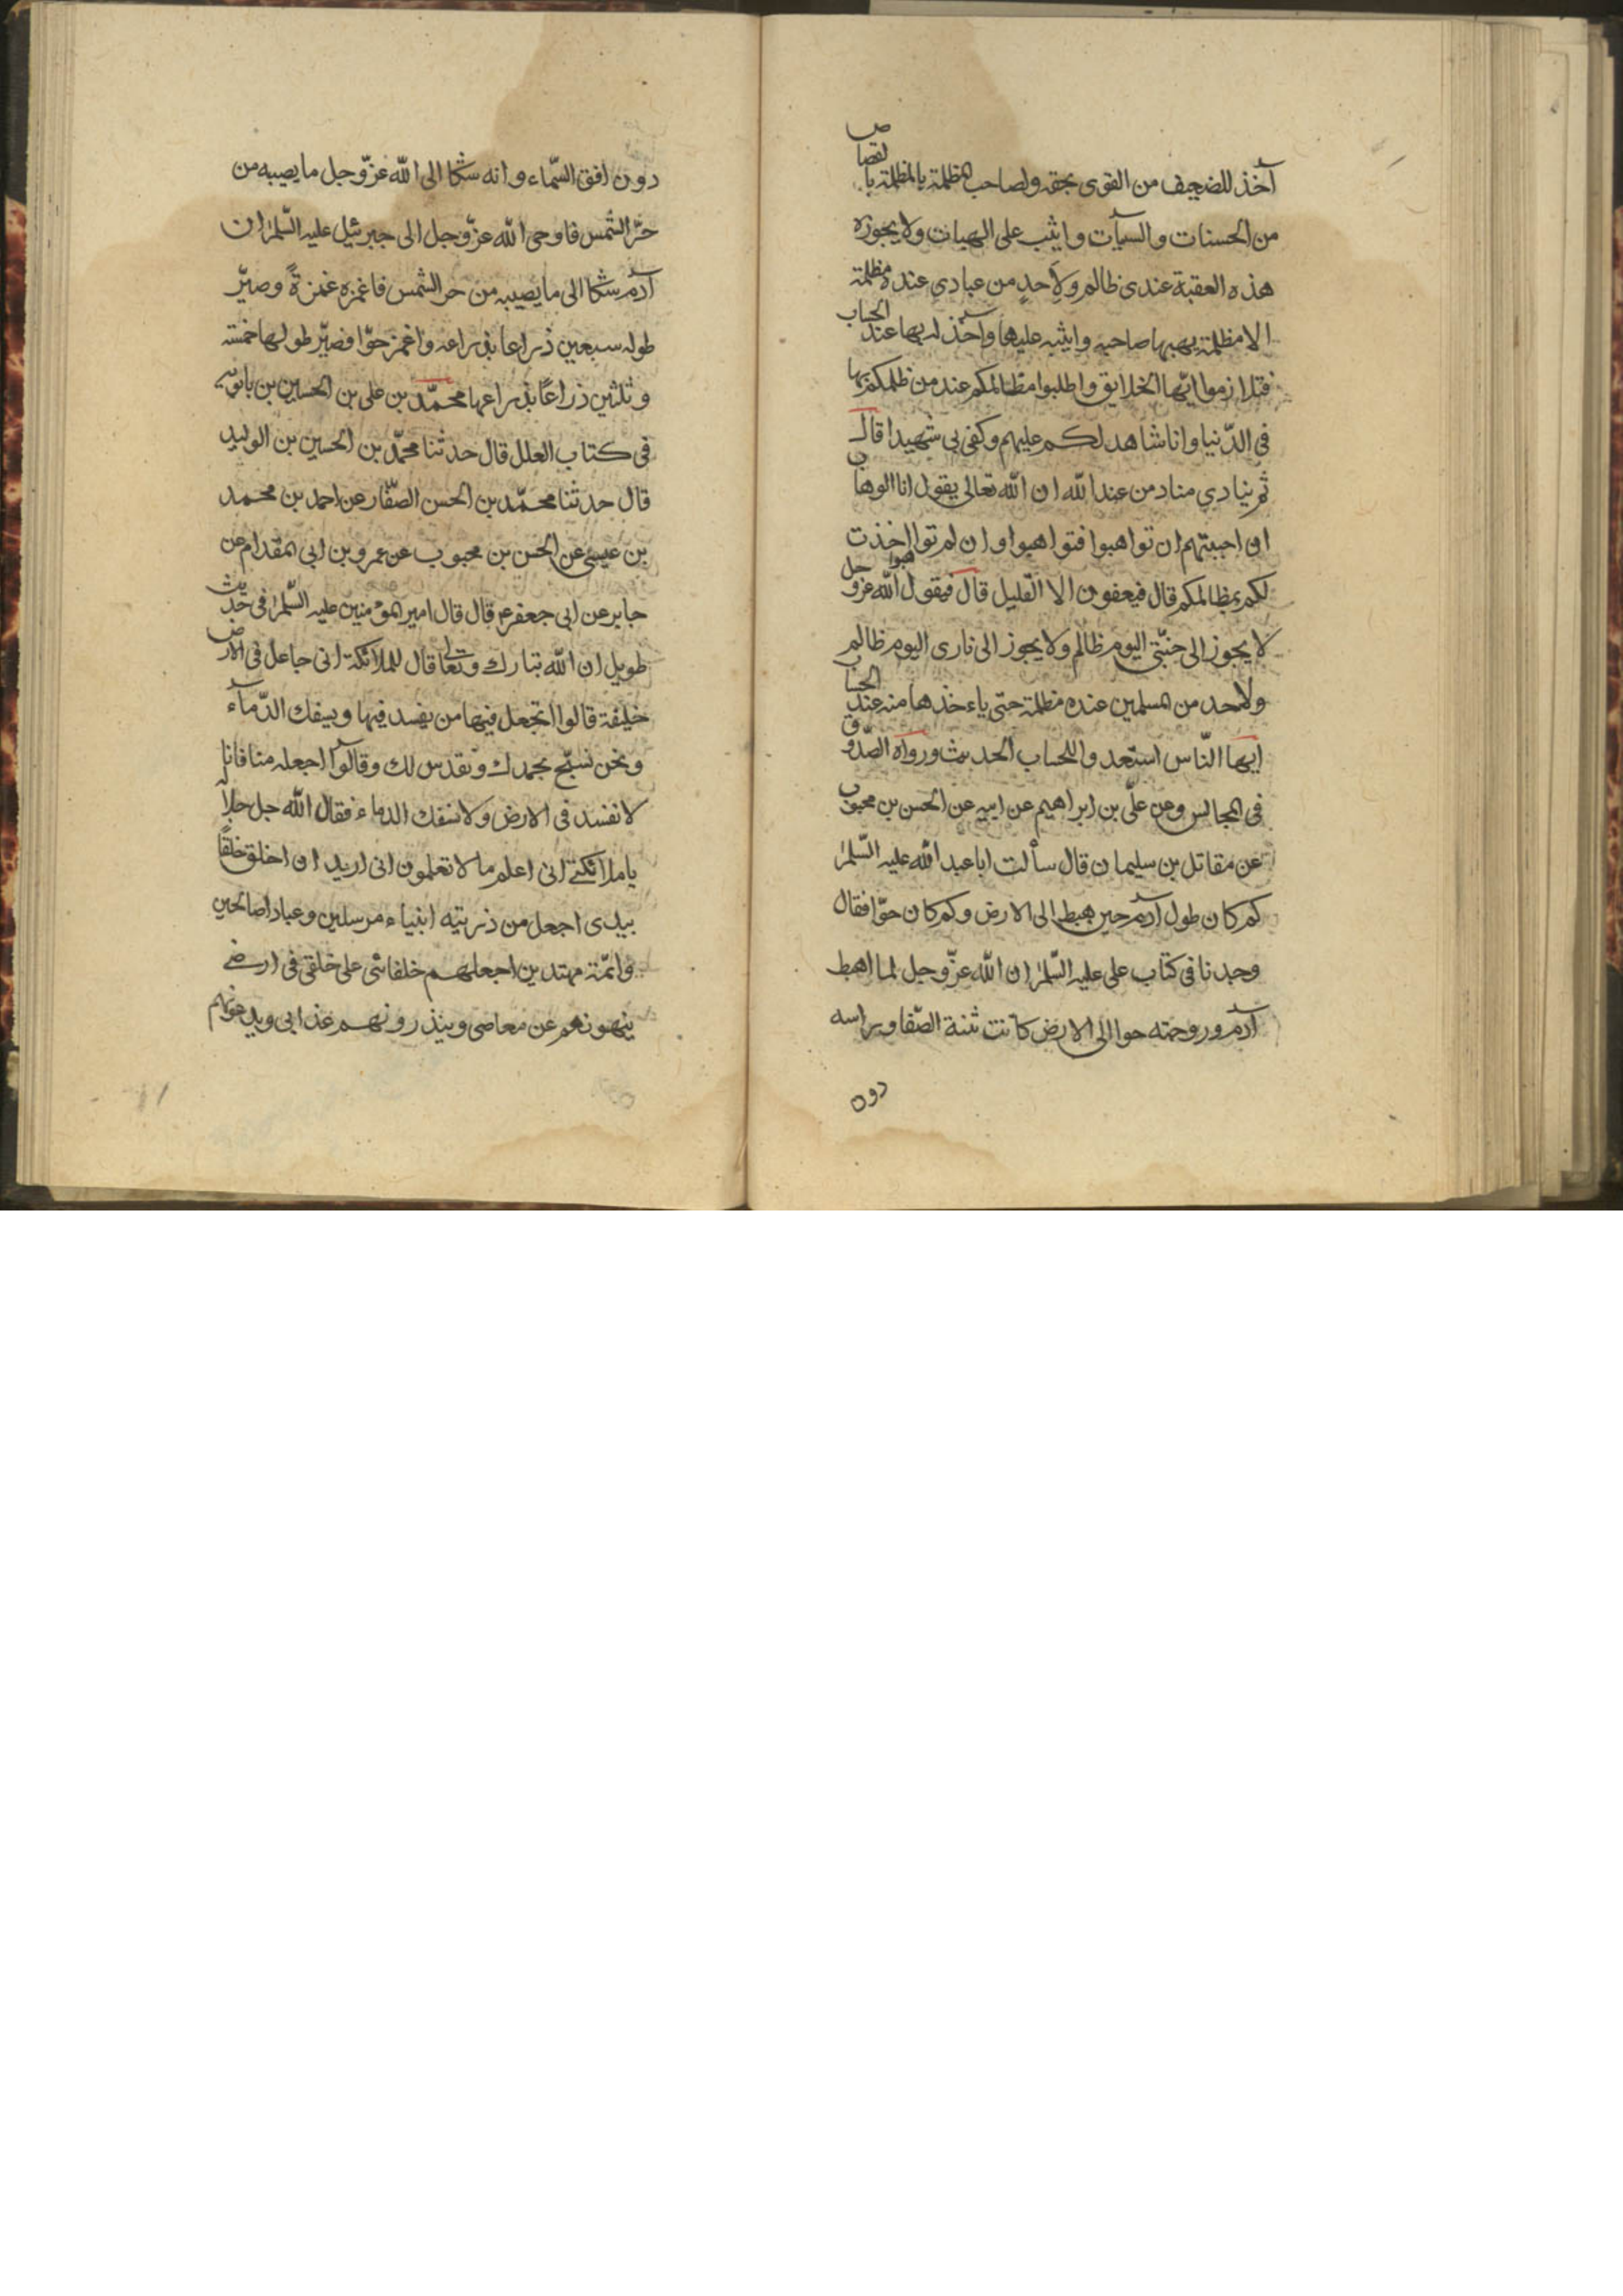 آخذ للضعيف من القوى بحقه ولصاحب المظلمة بالمظلمة بالقصاص
من الحسنات والسيآت واثيب على الهبات ولا يجوزه
هذه العقبة عندى ظالم ولاحد من عبادي عنده مظلمة
الا مظلمة يهبها صاحبه واثيبه عليها وآخذ له بها عند الحساب
فتلازموا ايها الخلايق واطلبوا مظالمكم عند من ظلمكم بها
فى الدّنيا وانا شاهد لكم عليهم وكفى بى شهيدا قال
ثم ينادي مناد من عند الله ان الله تعالى يقول انا الوهاب
ان احببتم ان تواهبوا فتواهبوا وان لم تواهبوا اخذت
لكم بمظالمكم قال فيعفون الا القليل قال فيقول الله عز وجل
لا يجوز الى جنّتى اليوم ظالم ولا يجوز الى نارى اليوم ظالم
ولاحد من المسلمين عنده مظلمة حتى ياءخذها منه عند الحساب
ايها النّاس استعدوا للحساب الحديث ورواه الصّدوق
فى المجالس وعن علىّ بن ابراهيم عن ابيه عن الحسن بن محبوب
عن مقاتل بن سليمان قال سألت ابا عبد الله عليه السّلم
كم كان طول آدم حين هبط الى الارض وكم كان حوّا فقال
وجدنا فى كتاب على عليه السّلم ان الله عزّ وجل لما اهبط
آدم وزوجته حوا الى الارض كانت ثنية الصّفا وراسه
دون
دون افق السّماء وانه شكا الى الله عزّ وجل ما يصيبه من
حرّ الشّمس فاوحى الله عزّ وجل الى جبرئيل عليه السّلم ان
آدم شكا الى ما يصيبه من حر الشمس فاغمزه غمزةً وصيّر
طوله سبعين ذراعا بذراعه واغمز حوّا فصيّر طولها خمسة
وثلثين ذراعًا بذراعها محمّد بن على بن الحسين بن بابويه
فى كتاب العلل قال حدثنا محمّد بن الحسين بن الوليد
قال حدثنا محمّد بن الحسن الصّفار عن احمد بن محمد
بن عيسى عن الحسن بن محبوب عن عمرو بن ابى المقدام عن
جابر عن ابى جعفر ع قال قال امير المؤمنين عليه السّلم فى حديث
طويل ان الله تبارك وتعالى قال للملائكة انى جاعل فى الارض
خليفة قالوا اتجعل فيها من يفسد فيها ويسفك الدّمآء
ونحن نسبّح بحمدك ونقدس لك وقالوا اجعله منا فانا
لا نفسد فى الارض ولا نسفك الدماء فقال الله جل جلاله
يا ملائكتى انى اعلم ما لا تعلمون انى اريد ان اخلق خلقًا
بيدى اجعل من ذريته انبياء مرسلين وعبادا صالحين
وائمّة مهتدين اجعلهم خلفائى على خلقى فى ارضى
ينهونهم عن معاصى وينذرونهم عذابى ويدعونهم